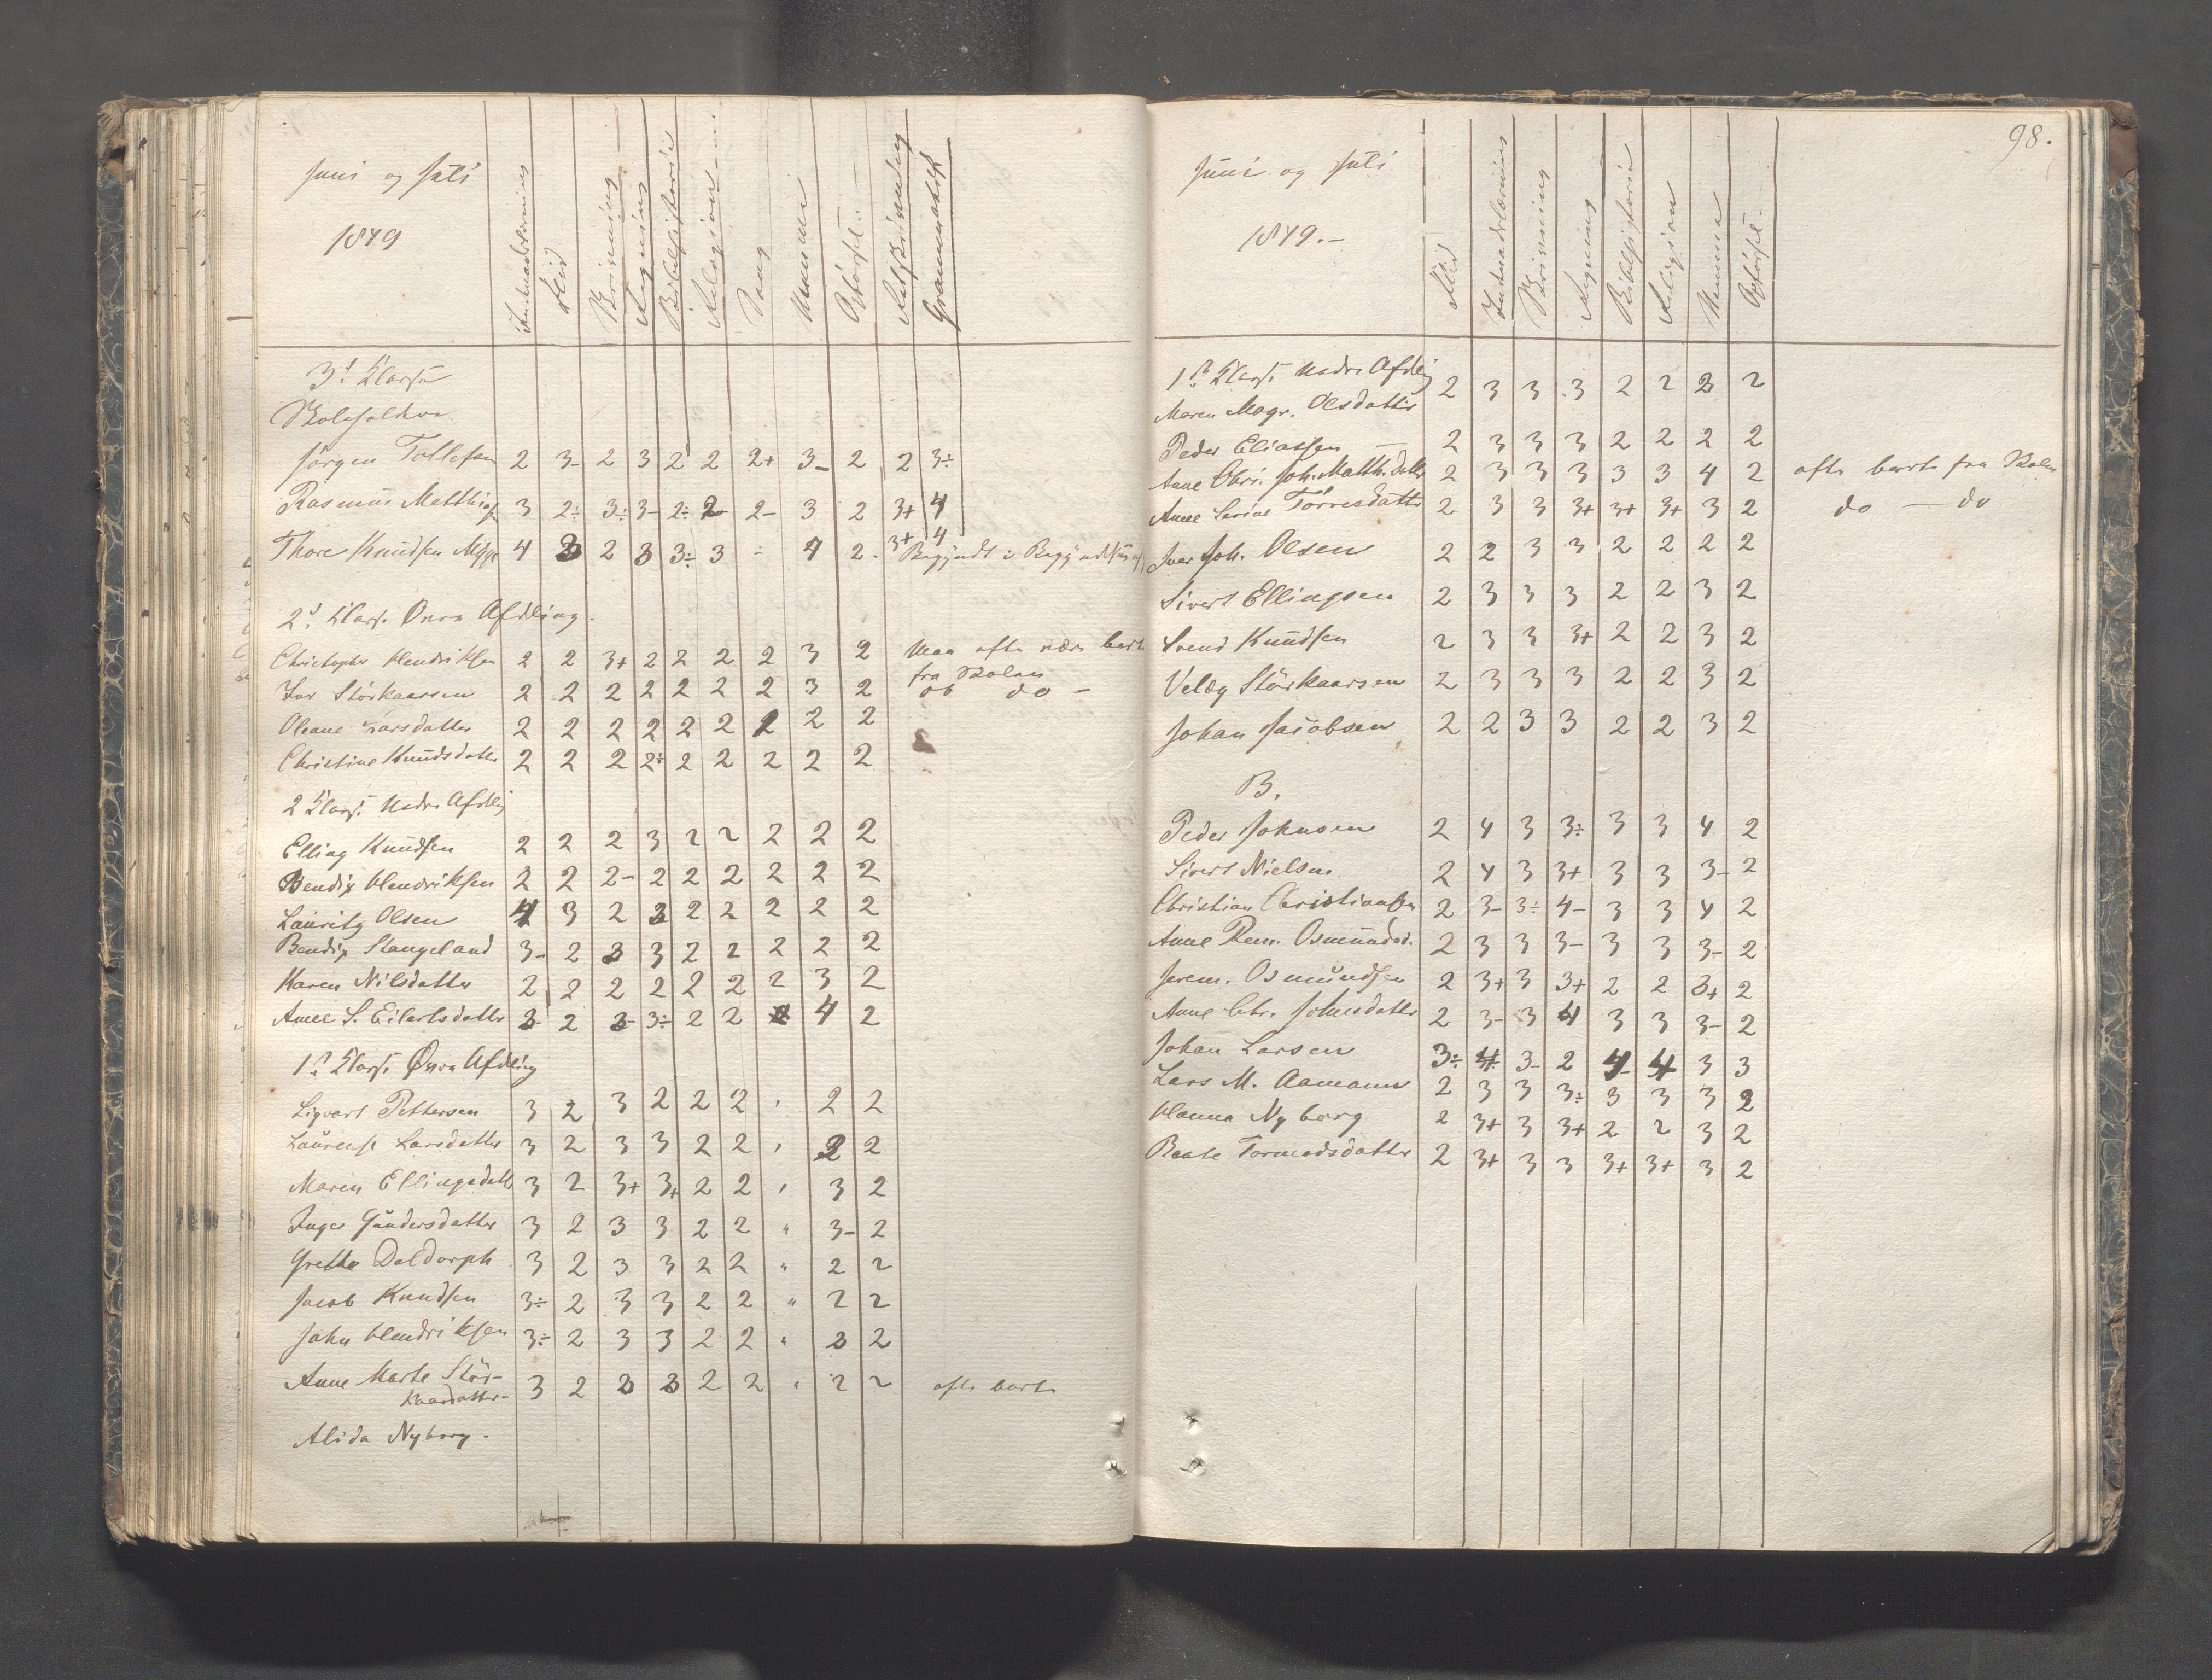 Juni og Juli
1849
Indenadslæsning Flid Skrivning Regning Bibelhistorie Religion Sang Nummer Opførsel Retskrivning Grammatik
3d Klasse
Jørgen Tollefsen 2 3- 2 3 2 2 2+ 3- 2 2 3÷
Rasmus Matthias 3 2÷ 3÷ 3- 2÷ 2 2- 3 2 3+ 4
Thore Knudsen 4 3 2 3 3÷ 3 ÷ 4 2 3+ 4
2d Klasse Øvre Afdeling.
Christopher Hendriksen 2 2 3+ 2 2 2 2 3 2 Maa ofte være borte
fra Skolen
Iver Störkaarsen 2 2 2 2 2 2 2 3 2 do -
Oleane Larsdatter 2 2 2 2 2 2 2 2 2
Christine Knudsdatter 2 2 2 2÷ 2 2 2 2 2
2 Klasse Nedre Afdlg
Elling Knudsen 2 2 2 3 2 2 2 2 2
Bendix Hendriksen 2 2 2- 2 2 2 2 2 2
Lauritz Olsen 4 3 2 3 2 2 2 2 2
Bendix Stangeland 3- 2 3 3 2 2 2 2 2
Karen Nilsdatter 2 2 2 2 2 2 2 3 2
Anne S. Eilertsdatter 3- 2 3- 3÷ 2 2 2 4 2
1ste Klasse Øvre Afdling
Sigvart Pettersen 3 2 3 2 2 2 " 2 2
Laurense Larsdatter 3 2 3 3 2 2 " 2 2
Maren Ellingsdatt 3 2 3+ 3+ 2 2 " 3 2
Inger Gundersdatter 3 2 3 3 2 2 " 3- 2
Grethe Daldorph 3 2 3 3 2 2 " 2 2
Jacob Knudsen 3÷ 2 3 3 2 2 " 2 2
John Hendriksen 3÷ 2 3 3 2 2 " 3 2
Anne Marte Stör-
kaarsdatter- 3 2 3 3 2 2 " 2 2 ofte borte
Alida Nyborg.
98.
Juni og Juli
1849.-
Flid Indenadslæsning Skrivning Regning Bibelhistorie Religion Nummer Opførsel
1ste Klasse Nedre Afdlg
Maren Magr. Olsdatter 2 3 3 3 2 2 3 2
Peder Eliassen — 2 3 3 3 2 2 2 2
Anne Chri. Joh. Matth.datter 2 3 3 3 3 3 4 2 ofte borte fra Skolen
Anne Serine Torresdatter 2 3 3 3+ 3+ 3+ 3 2 do — do
Iver Joh. Olsen 2 2 3 3 2 2 2 2
Sivert Ellingsen 2 3 3 3 2 2 3 2
Svend Knudsen 2 3 3 3+ 2 2 3 2
Velæg Störkaarsen 2 3 3 3 2 2 3 2
Johan Jacobsen 2 2 3 3 2 2 3 2
B.
Peder Johnsen 2 4 3 3÷ 3 3 4 2
Sivert Nielsen 2 4 3 3+ 3 3 3- 2
Christian Christiansen 2 3- 3÷ 4- 3 3 4 2
Anne Rem. Osmundsd. 2 3 3 3- 3 3 3- 2
Jerem. Osmundsen 2 3+ 3 3+ 2 2 3+ 2
Anne Chr. Johnsdatter 2 3- 3 4 3 3 3- 2
Johan Larsen 3÷ 4 3- 2 4- 4 3 3
Lars M. Aamann 2 3 3 3÷ 3 3 3 2
Hanna Nyborg 2 3+ 3 3+ 2 2 3 2
Beate Tormodsdatter 2 3+ 3 3 3+ 3+ 3 2